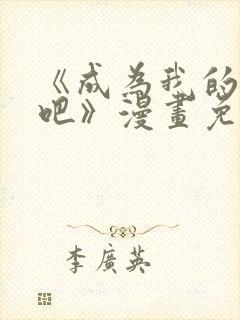 《成为我的
吧》漫畫免
李廣英